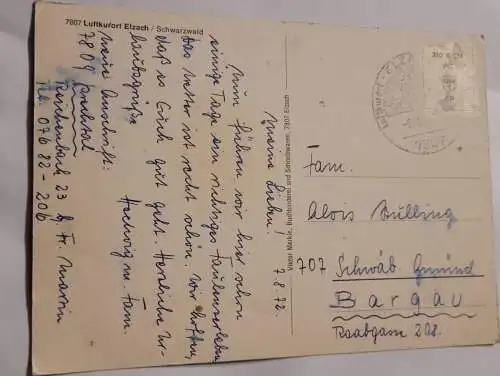 7807 Luftkurort Elzach / Schwarzwald
7.8.72
Meine Lieben!
Nun führen wir hier schon
einige Tage ein richtiges Faulenzerleben,
das Wetter ist recht schön. Wir hoffen,
daß es Euch gut geht. Herzliche Ur-
laubsgrüße
Hedwig m. Fam.
Neue Anschrift:
7809
Reichenbach 23 b. Fr.
Tel. 07682 - 206
Viktor Merkle, Buchbinderei und Schreibwaren, 7807 Elzach
Fam.
Alois Bülling
707 Schwäb. Gmünd
Bargau
Raabgasse 208.